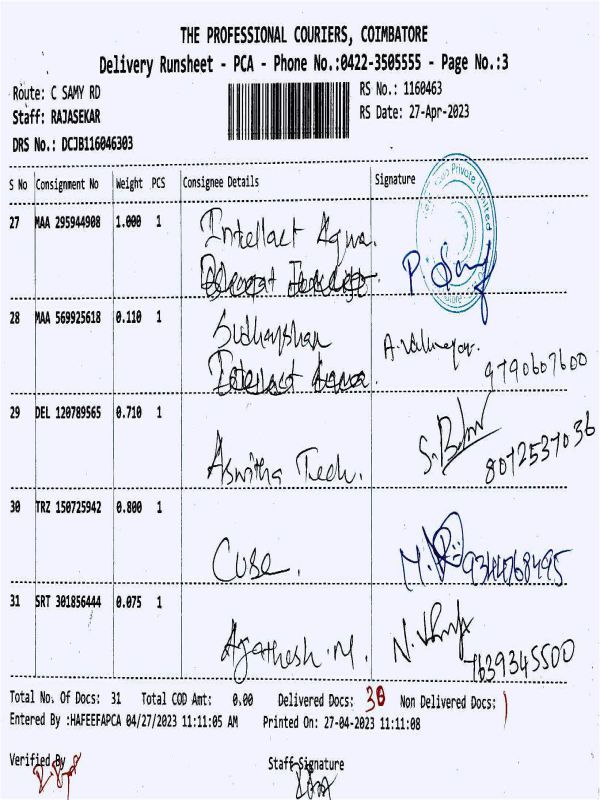 THE PROFESSIONAL COURIERS, COIMBATORE
Delivery Runsheet - PCA - Phone No.:0422-3505555 - Page No.:3
Route: C SAMY RD
RS No.: 1160463
Staff: RAJASEKAR
RS Date: 27-Apr-2023
DRS No.: DCJB116046303
S No Consignment No Weight PCS Consignee Details Signature
Private Limited
27 MAA 295944908 1.000 1 Intellact Aqua.
28 MAA 569925618 0.110 1 Sudharshan
9790607600
29 DEL 120789565 0.710 1
Aswitha Tech. 8072537036
30 TRZ 150725942 0.800 1
Cube. 9344768495
31 SRT 301856444 0.075 1
Agathesh.M. 7639345500
Total No. Of Docs: 31 Total COD Amt: 0.00 Delivered Docs: 30 Non Delivered Docs: 1
Entered By :HAFEEFAPCA 04/27/2023 11:11:05 AM Printed On: 27-04-2023 11:11:08
Verified By
Staff Signature